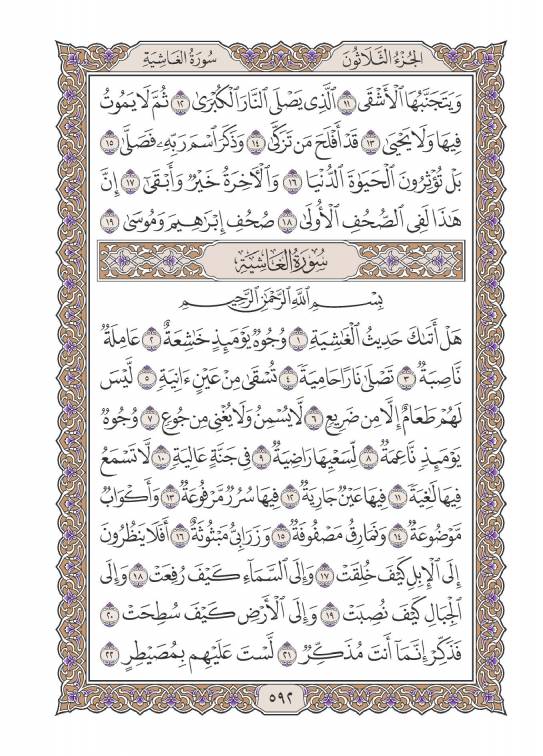 الجُزْءُ الثَّلَاثُونَ
سُورَةُ الغَاشِيَةِ
وَيَتَجَنَّبُهَا ٱلْأَشْقَى ١١ ٱلَّذِى يَصْلَى ٱلنَّارَ ٱلْكُبْرَىٰ ١٢ ثُمَّ لَا يَمُوتُ
فِيهَا وَلَا يَحْيَىٰ ١٣ قَدْ أَفْلَحَ مَن تَزَكَّىٰ ١٤ وَذَكَرَ ٱسْمَ رَبِّهِۦ فَصَلَّىٰ ١٥
بَلْ تُؤْثِرُونَ ٱلْحَيَوٰةَ ٱلدُّنْيَا ١٦ وَٱلْـَٔاخِرَةُ خَيْرٌ وَأَبْقَىٰٓ ١٧ إِنَّ
هَٰذَا لَفِى ٱلصُّحُفِ ٱلْأُولَىٰ ١٨ صُحُفِ إِبْرَٰهِيمَ وَمُوسَىٰ ١٩
سُورَةُ الغَاشِيَةِ
بِسْمِ ٱللَّهِ ٱلرَّحْمَٰنِ ٱلرَّحِيمِ
هَلْ أَتَىٰكَ حَدِيثُ ٱلْغَٰشِيَةِ ١ وُجُوهٌ يَوْمَئِذٍ خَٰشِعَةٌ ٢ عَامِلَةٌ
نَّاصِبَةٌ ٣ تَصْلَىٰ نَارًا حَامِيَةً ٤ تُسْقَىٰ مِنْ عَيْنٍ ءَانِيَةٍ ٥ لَّيْسَ
لَهُمْ طَعَامٌ إِلَّا مِن ضَرِيعٍ ٦ لَّا يُسْمِنُ وَلَا يُغْنِى مِن جُوعٍ ٧ وُجُوهٌ
يَوْمَئِذٍ نَّاعِمَةٌ ٨ لِّسَعْيِهَا رَاضِيَةٌ ٩ فِى جَنَّةٍ عَالِيَةٍ ١٠ لَّا تَسْمَعُ
فِيهَا لَٰغِيَةً ١١ فِيهَا عَيْنٌ جَارِيَةٌ ١٢ فِيهَا سُرُرٌ مَّرْفُوعَةٌ ١٣ وَأَكْوَابٌ
مَّوْضُوعَةٌ ١٤ وَنَمَارِقُ مَصْفُوفَةٌ ١٥ وَزَرَابِىُّ مَبْثُوثَةٌ ١٦ أَفَلَا يَنظُرُونَ
إِلَى ٱلْإِبِلِ كَيْفَ خُلِقَتْ ١٧ وَإِلَى ٱلسَّمَآءِ كَيْفَ رُفِعَتْ ١٨ وَإِلَى
ٱلْجِبَالِ كَيْفَ نُصِبَتْ ١٩ وَإِلَى ٱلْأَرْضِ كَيْفَ سُطِحَتْ ٢٠
فَذَكِّرْ إِنَّمَآ أَنتَ مُذَكِّرٌ ٢١ لَّسْتَ عَلَيْهِم بِمُصَيْطِرٍ ٢٢
٥٩٢